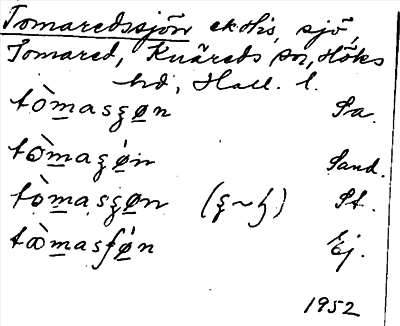 Tomaredssjön ekolis, sjö,
Tomared, Knäreds sn, Höks
hd, Hall. l.
tòmasʂøn Sa.
tòmaʂøn Sand.
tòmasʂøn (ʂ~ɧ) St.
tòmasʃøn Ej.
1952